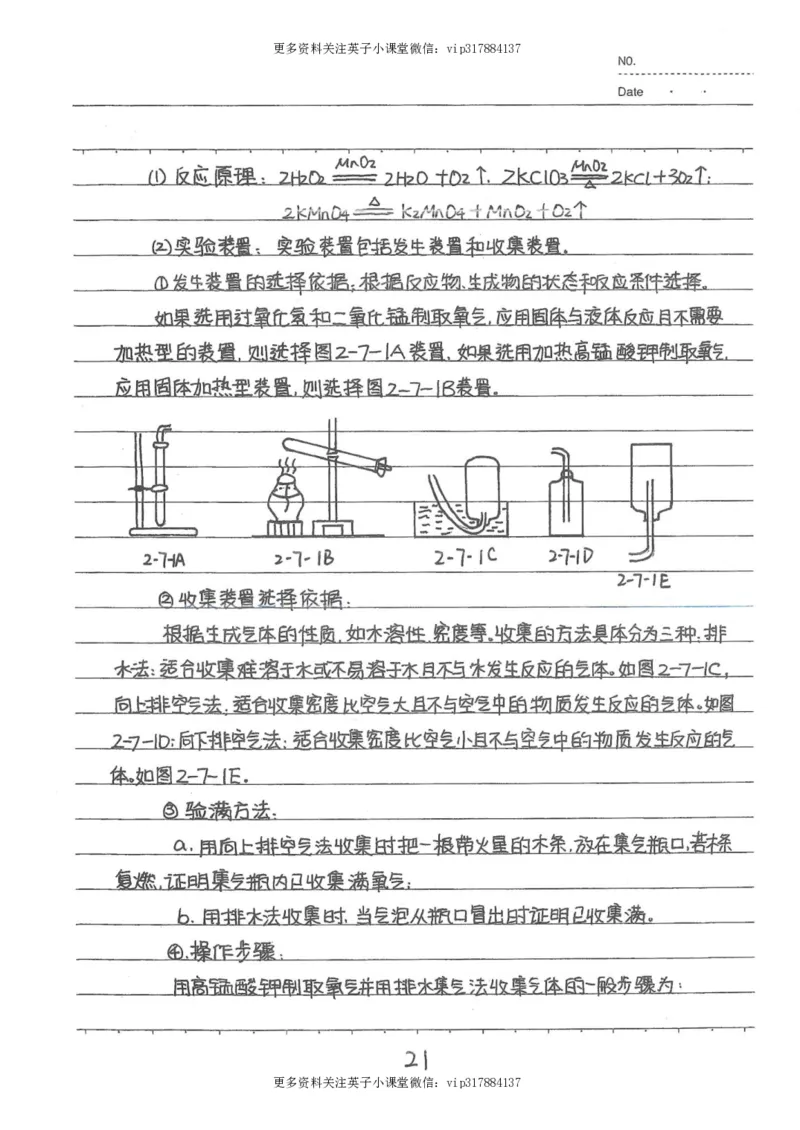 更多资料关注英子小课堂微信：vip317884137
NO.
Date · ·
(1) 反应原理：2H2O2 =MnO2= 2H2O+O2↑. 2KClO3 =MnO2/△= 2KCl+3O2↑；
2KMnO4 =△= K2MnO4+MnO2+O2↑
(2)实验装置：实验装置包括发生装置和收集装置。
①发生装置的选择依据：根据反应物、生成物的状态和反应条件选择。
如果选用过氧化氢和二氧化锰制取氧气，应用固体与液体反应且不需要
加热型的装置，则选择图2-7-1A装置，如果选用加热高锰酸钾制取氧气，
应用固体加热型装置，则选择图2-7-1B装置。
2-7-1A 2-7-1B 2-7-1C 2-7-1D
2-7-1E
②收集装置选择依据：
根据生成气体的性质，如水溶性、密度等。收集的方法具体分为三种：排
水法：适合收集难溶于水或不易溶于水且不与水发生反应的气体。如图2-7-1C，
向上排空气法：适合收集密度比空气大且不与空气中的物质发生反应的气体。如图
2-7-1D；向下排空气法：适合收集密度比空气小且不与空气中的物质发生反应的气
体。如图2-7-1E.
③验满方法：
a. 用向上排空气法收集时把一根带火星的木条，放在集气瓶口，若木条
复燃，证明集气瓶内已收集满氧气；
b. 用排水法收集时，当气泡从瓶口冒出时证明已收集满。
④.操作步骤：
用高锰酸钾制取氧气并用排水集气法收集气体的一般步骤为：
21
更多资料关注英子小课堂微信：vip317884137